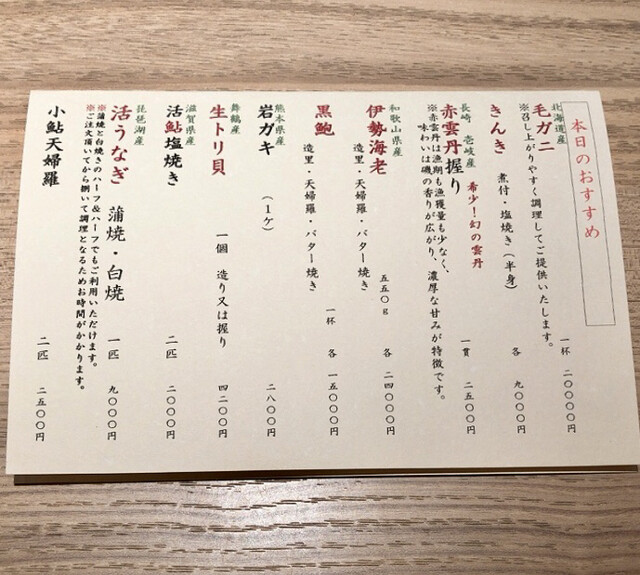 本日のおすすめ
北海道産
毛ガニ 一杯 二〇〇〇〇円
※召し上がりやすく調理してご提供いたします。
きんき 煮付・塩焼き(半身) 各 九〇〇〇円
長崎 壱岐産 希少!幻の雲丹
赤雲丹握り 一貫 二五〇〇円
※赤雲丹は漁期も漁獲量も少なく、
味わいは磯の香りが広がり、濃厚な甘みが特徴です。
和歌山県産
伊勢海老 造里・天婦羅・バター焼き 五五〇g 各 二四〇〇〇円
黒鮑 造里・天婦羅・バター焼き 一杯 各 一五〇〇〇円
熊本県産
岩ガキ (1ケ) 二八〇〇円
舞鶴産
生トリ貝 一個 造り又は握り 四二〇〇円
滋賀県産
活鮎塩焼き 二匹 二〇〇〇円
琵琶湖産
活うなぎ 蒲焼・白焼 一匹 九〇〇〇円
※蒲焼と白焼きのハーフ&ハーフでもご利用いただけます。
※ご注文頂いてから捌いて調理となるためお時間がかかります。
小鮎天婦羅 二匹 二五〇〇円